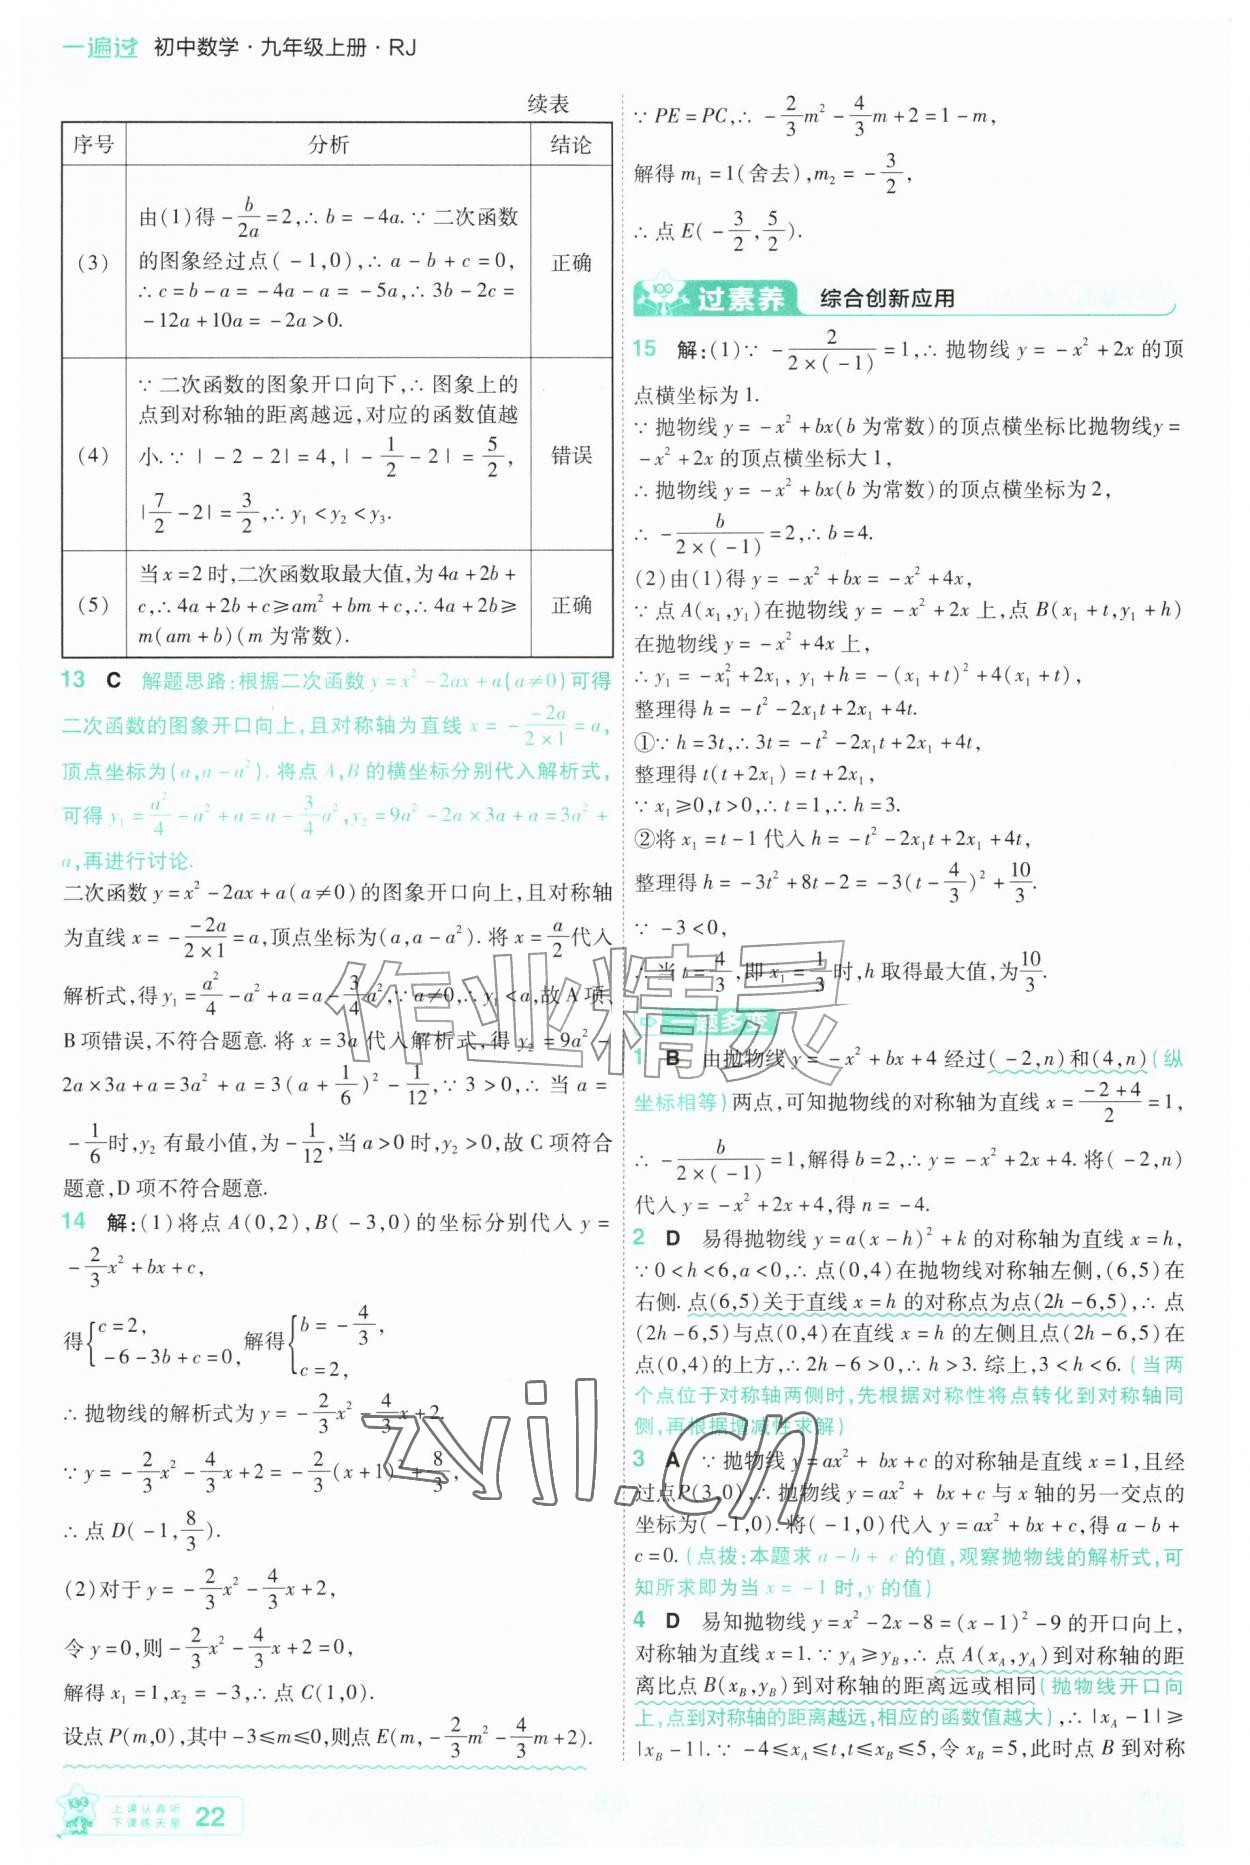 一遍过 初中数学·九年级上册·RJ
续表
序号 分析 结论
(3) 由(1)得-b/2a=2,∴b=-4a.∵二次函数
的图象经过点(-1,0),∴a-b+c=0,
∴c=b-a=-4a-a=-5a,∴3b-2c=
-12a+10a=-2a>0.
正确
(4) ∵二次函数的图象开口向下,∴图象上的
点到对称轴的距离越远,对应的函数值越
小.∵|-2-2|=4,|-1/2-2|=5/2,
|7/2-2|=3/2,∴y₁<y₂<y₃.
错误
(5) 当x=2时,二次函数取最大值,为4a+2b+
c,∴4a+2b+c≥am²+bm+c,∴4a+2b≥
m(am+b)(m为常数).
正确
13 C 解题思路:根据二次函数y=x²-2ax+a(a≠0)可得
二次函数的图象开口向上,且对称轴为直线x=-(-2a)/(2×1)=a,
顶点坐标为(a,a-a²).将点A,B的横坐标分别代入解析式,
可得y₁=a²/4-a²+a=a-3/4a²,y₂=9a²-2a×3a+a=3a²+
a,再进行讨论.
二次函数y=x²-2ax+a(a≠0)的图象开口向上,且对称轴
为直线x=-(-2a)/(2×1)=a,顶点坐标为(a,a-a²).将x=a/2代入
解析式,得y₁=a²/4-a²+a=a-3/4a²,∵a≠0,∴y₁<a,故A项、
B项错误,不符合题意.将x=3a代入解析式,得y₂=9a²-
2a×3a+a=3a²+a=3(a+1/6)²-1/12,∵3>0,∴当a=
-1/6时,y₂有最小值,为-1/12,当a>0时,y₂>0,故C项符合
题意,D项不符合题意.
14 解:(1)将点A(0,2),B(-3,0)的坐标分别代入y=
-2/3x²+bx+c,
得{c=2, -6-3b+c=0,解得{b=-4/3, c=2,
∴抛物线的解析式为y=-2/3x²-4/3x+2.
∵y=-2/3x²-4/3x+2=-2/3(x+1)²+8/3,
∴点D(-1,8/3).
(2)对于y=-2/3x²-4/3x+2,
令y=0,则-2/3x²-4/3x+2=0,
解得x₁=1,x₂=-3,∴点C(1,0).
设点P(m,0),其中-3≤m≤0,则点E(m,-2/3m²-4/3m+2).
上课认真听
下课练天星
22
∵PE=PC,∴-2/3m²-4/3m+2=1-m,
解得m₁=1(舍去),m₂=-3/2,
∴点E(-3/2,5/2).
100 过素养 综合创新应用
15 解:(1)∵-2/(2×(-1))=1,∴抛物线y=-x²+2x的顶
点横坐标为1.
∵抛物线y=-x²+bx(b为常数)的顶点横坐标比抛物线y=
-x²+2x的顶点横坐标大1,
∴抛物线y=-x²+bx(b为常数)的顶点横坐标为2,
∴-b/(2×(-1))=2,∴b=4.
(2)由(1)得y=-x²+bx=-x²+4x,
∵点A(x₁,y₁)在抛物线y=-x²+2x上,点B(x₁+t,y₁+h)
在抛物线y=-x²+4x上,
∴y₁=-x₁²+2x₁,y₁+h=-(x₁+t)²+4(x₁+t),
整理得h=-t²-2x₁t+2x₁+4t.
①∵h=3t,∴3t=-t²-2x₁t+2x₁+4t,
整理得t(t+2x₁)=t+2x₁,
∵x₁≥0,t>0,∴t=1,∴h=3.
②将x₁=t-1代入h=-t²-2x₁t+2x₁+4t,
整理得h=-3t²+8t-2=-3(t-4/3)²+10/3.
∵-3<0,
∴当t=4/3,即x₁=1/3时,h取得最大值,为10/3.
一题多变
1 B 由抛物线y=-x²+bx+4经过(-2,n)和(4,n)(纵
坐标相等)两点,可知抛物线的对称轴为直线x=(-2+4)/2=1,
∴-b/(2×(-1))=1,解得b=2,∴y=-x²+2x+4.将(-2,n)
代入y=-x²+2x+4,得n=-4.
2 D 易得抛物线y=a(x-h)²+k的对称轴为直线x=h,
∵0<h<6,a<0,∴点(0,4)在抛物线对称轴左侧,(6,5)在
右侧.点(6,5)关于直线x=h的对称点为点(2h-6,5),∴点
(2h-6,5)与点(0,4)在直线x=h的左侧且点(2h-6,5)在
点(0,4)的上方,∴2h-6>0,∴h>3.综上,3<h<6.(当两
个点位于对称轴两侧时,先根据对称性将点转化到对称轴同
侧,再根据增减性求解)
3 A ∵抛物线y=ax²+bx+c的对称轴是直线x=1,且经
过点P(3,0),∴抛物线y=ax²+bx+c与x轴的另一交点的
坐标为(-1,0).将(-1,0)代入y=ax²+bx+c,得a-b+
c=0.(点拨:本题求a-b+c的值,观察抛物线的解析式,可
知所求即为当x=-1时,y的值)
4 D 易知抛物线y=x²-2x-8=(x-1)²-9的开口向上,
对称轴为直线x=1.∵y_A≥y_B,∴点A(x_A,y_A)到对称轴的距
离比点B(x_B,y_B)到对称轴的距离远或相同(抛物线开口向
上,点到对称轴的距离越远,相应的函数值越大),∴|x_A-1|≥
|x_B-1|.∵-4≤x_A≤t,t≤x_B≤5,令x_B=5,此时点B到对称
作业精灵
zyil.cn